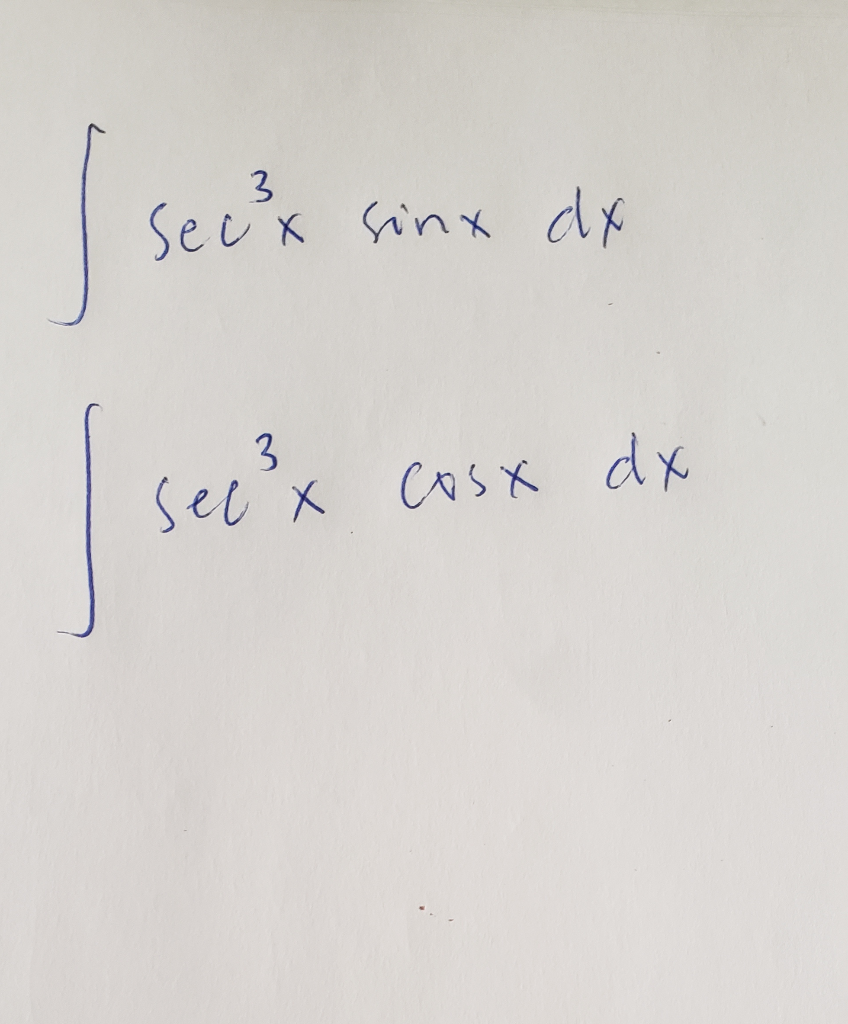 ∫ sec³x sinx dx
∫ sec³x cosx dx